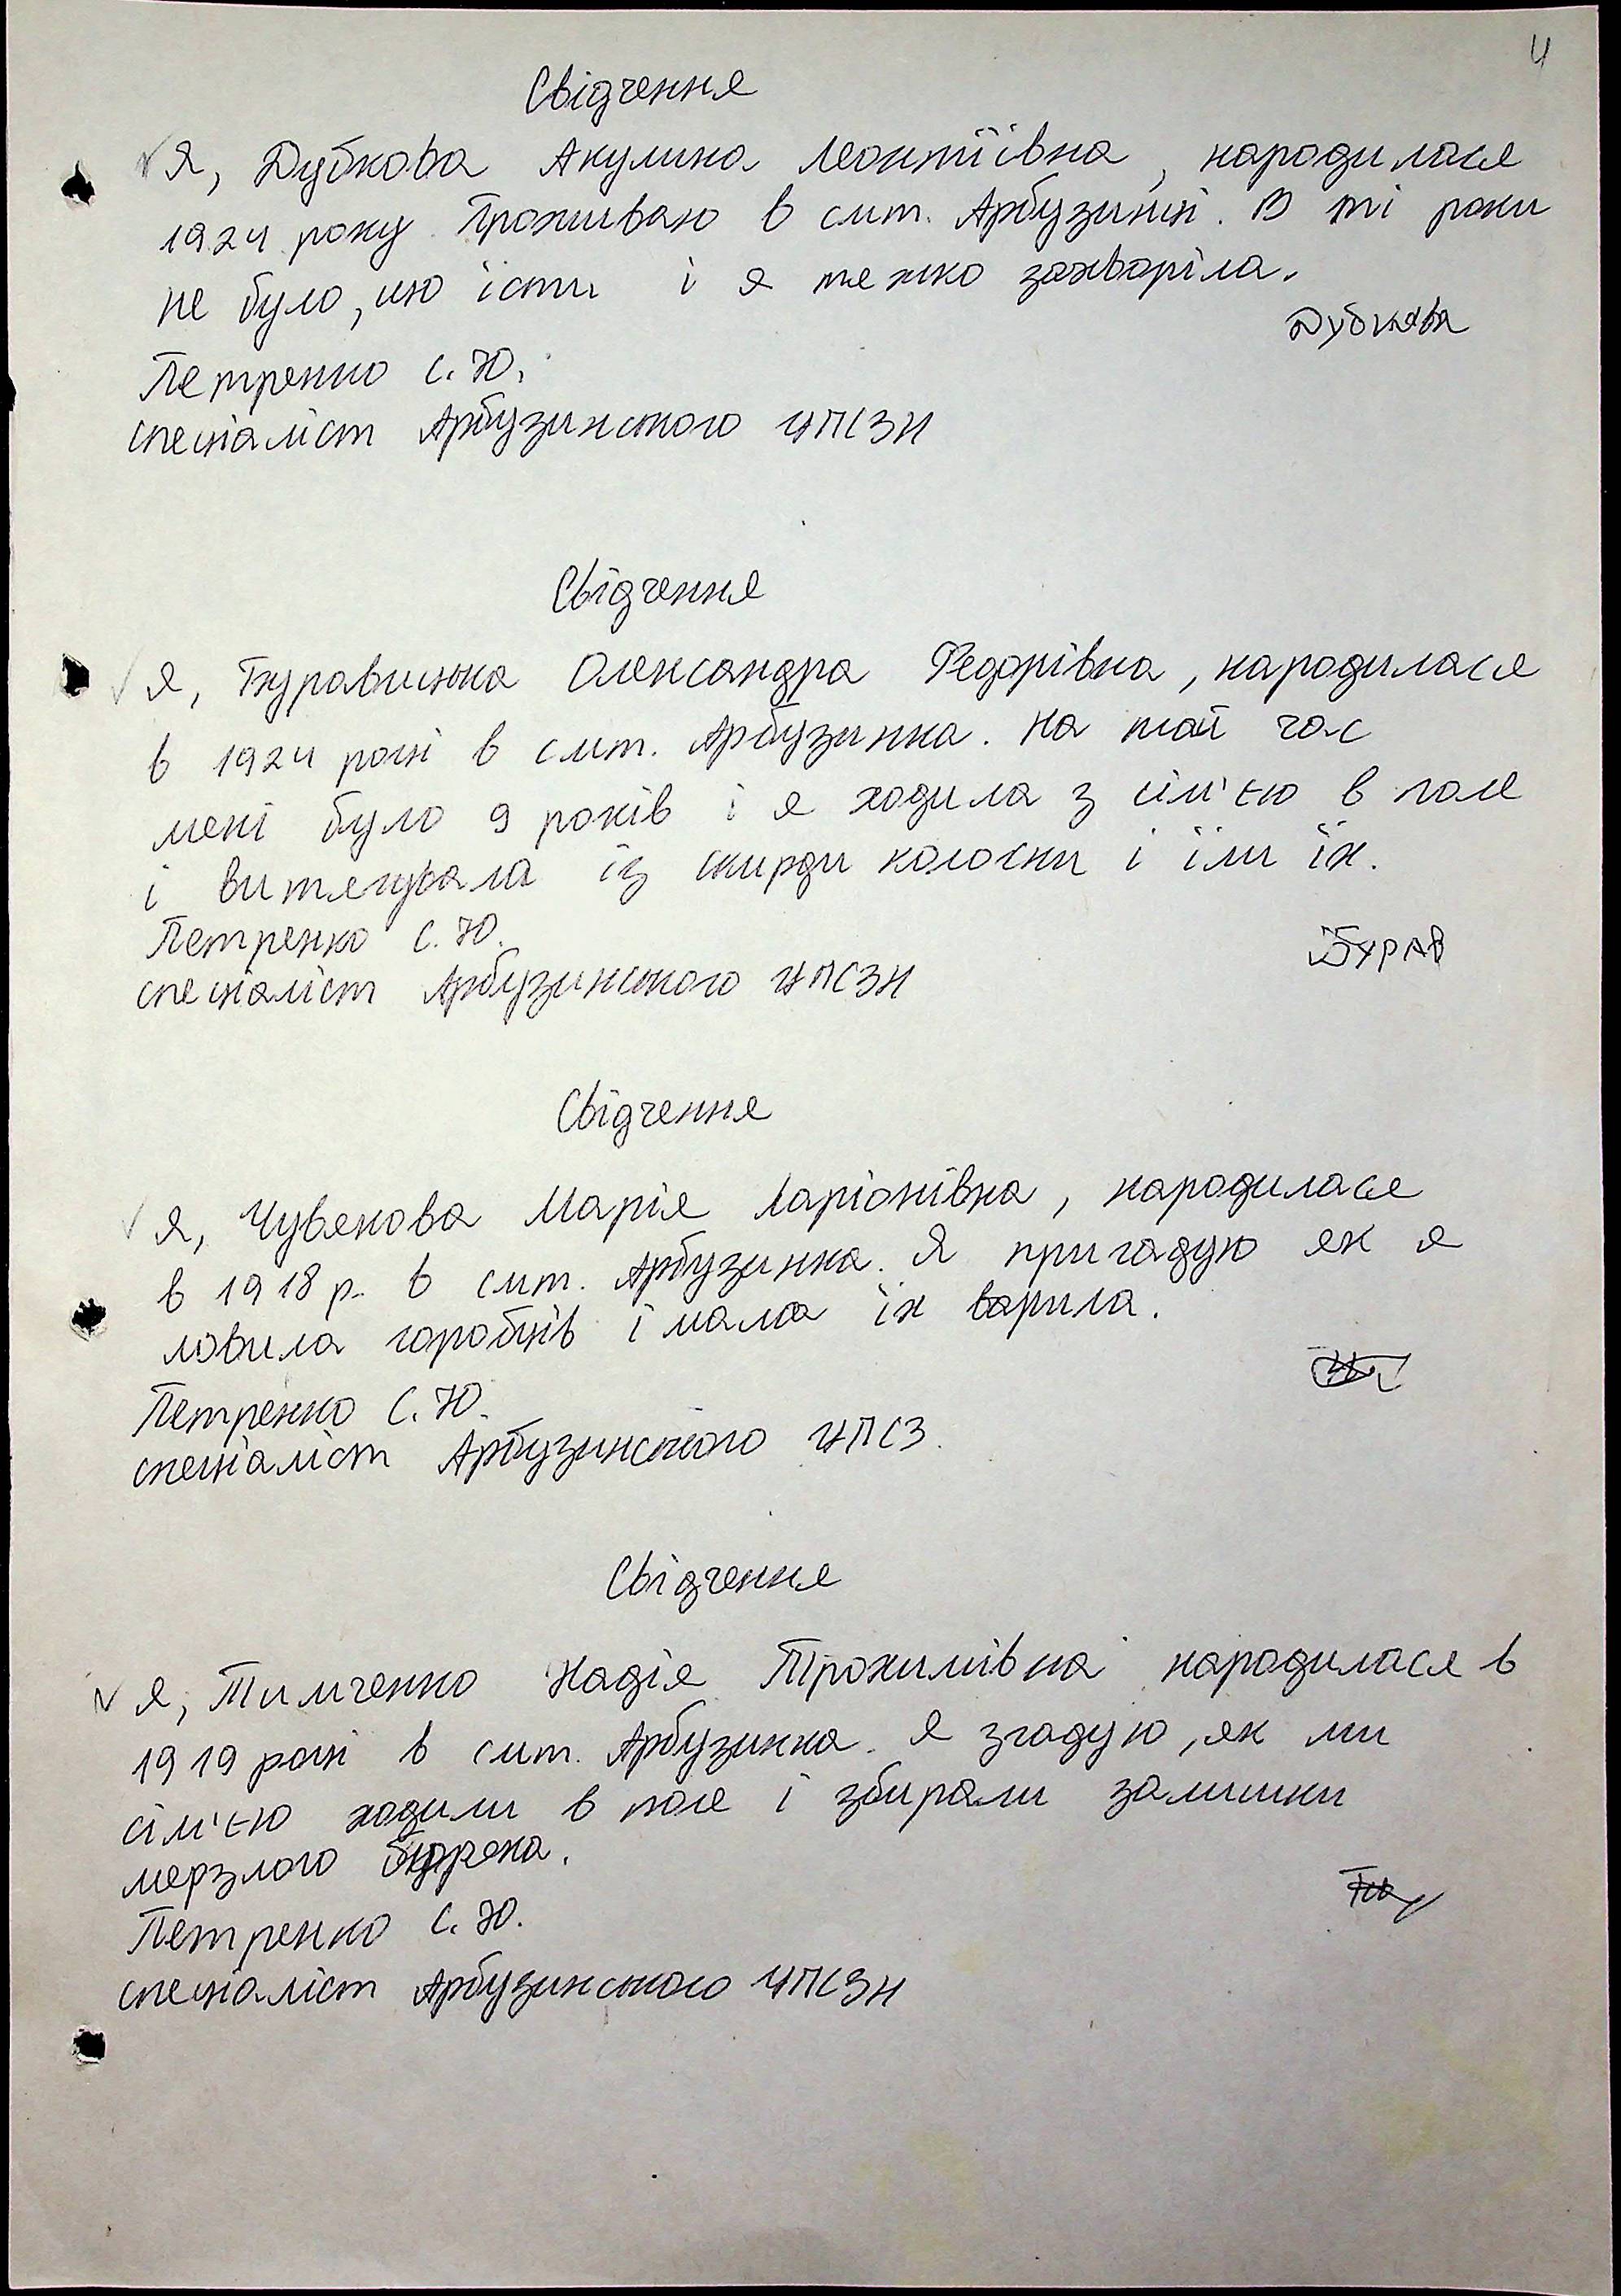 4
Свідчення
Я, Дубкова Акулина Леонтіївна, народилася
1924 року. Проживаю в смт. Арбузинці. В ті роки
не було, що їсти і я тяжко захворіла.
Дубкова
Петренко С.Ю.
спеціаліст Арбузинського ЦПСЗН
Свідчення
Я, Олександра Федорівна, народилася
в 1924 році в смт. Арбузинка. На той час
мені було 9 років і я ходила з сім'єю в поле
і витягувала із скирди колоски і їли їх.
Петренко С.Ю.
Бурав
спеціаліст Арбузинського ЦПСЗН
Свідчення
Я, Чувякова Марія Ларіонівна, народилася
в 1918 р. в смт. Арбузинка. Я пригадую як я
ловила горобців і мама їх варила.
Петренко С.Ю.
спеціаліст Арбузинського ЦПСЗ.
Свідчення
Я, Тимченко Надія Трохимівна народилася в
1919 році в смт. Арбузинка. Я згадую, як ми
сім'єю ходили в поле і збирали залишки
мерзлого буряка.
Петренко С.Ю.
спеціаліст Арбузинського ЦПСЗН